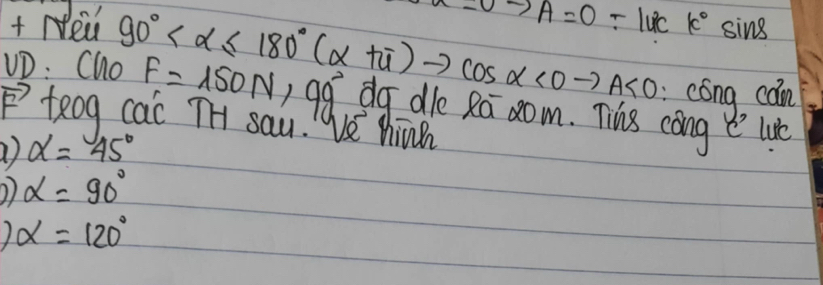 α = 0 → A = 0 ÷ lực k° sins
+ Nếu 90° < α ≤ 180° (α tù) → cos α < 0 → A < 0 : công cản
VD : Cho F = 150N, qg đg d/c là 20m. Tíns công c̉ lực
F⃗ trog các TH sau. Vẽ hình
a) α = 45°
b) α = 90°
) α = 120°